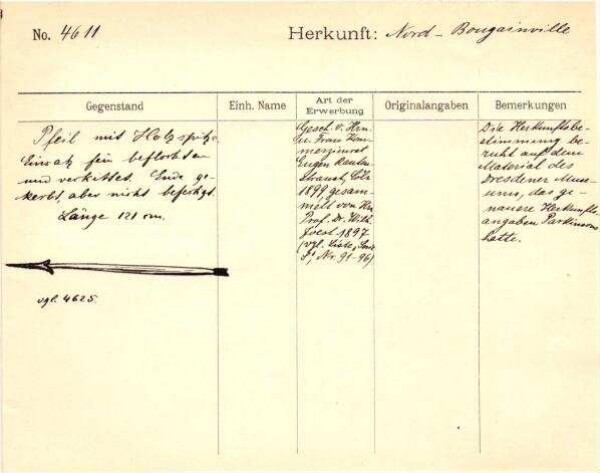 No. 4611
Herkunft: Nord-Bougainville
Gegenstand
Einh. Name
Art der Erwerbung
Originalangaben
Bemerkungen
Pfeil mit Holzspitze,
Einsatz fein beflochten
und verkittet. Ende ge-
kerbt, aber nicht befestigt.
Länge 121 cm.
vgl. 4625.
Gesch. v. Hrn.
u. Frau Kom-
merzienrat
Eugen Rauten-
strauch, Cöln
1899, gesam-
melt von Hn
Prof. Dr. Wilh.
Joest 1897
(vgl. Liste, Serie
Nr. 91-96)
Die Herkunftsbe-
stimmung be-
ruht auf dem
Material des
Dresdener Muse-
ums, das ge-
nauere Herkunfts-
angaben Parkinsons
hatte.